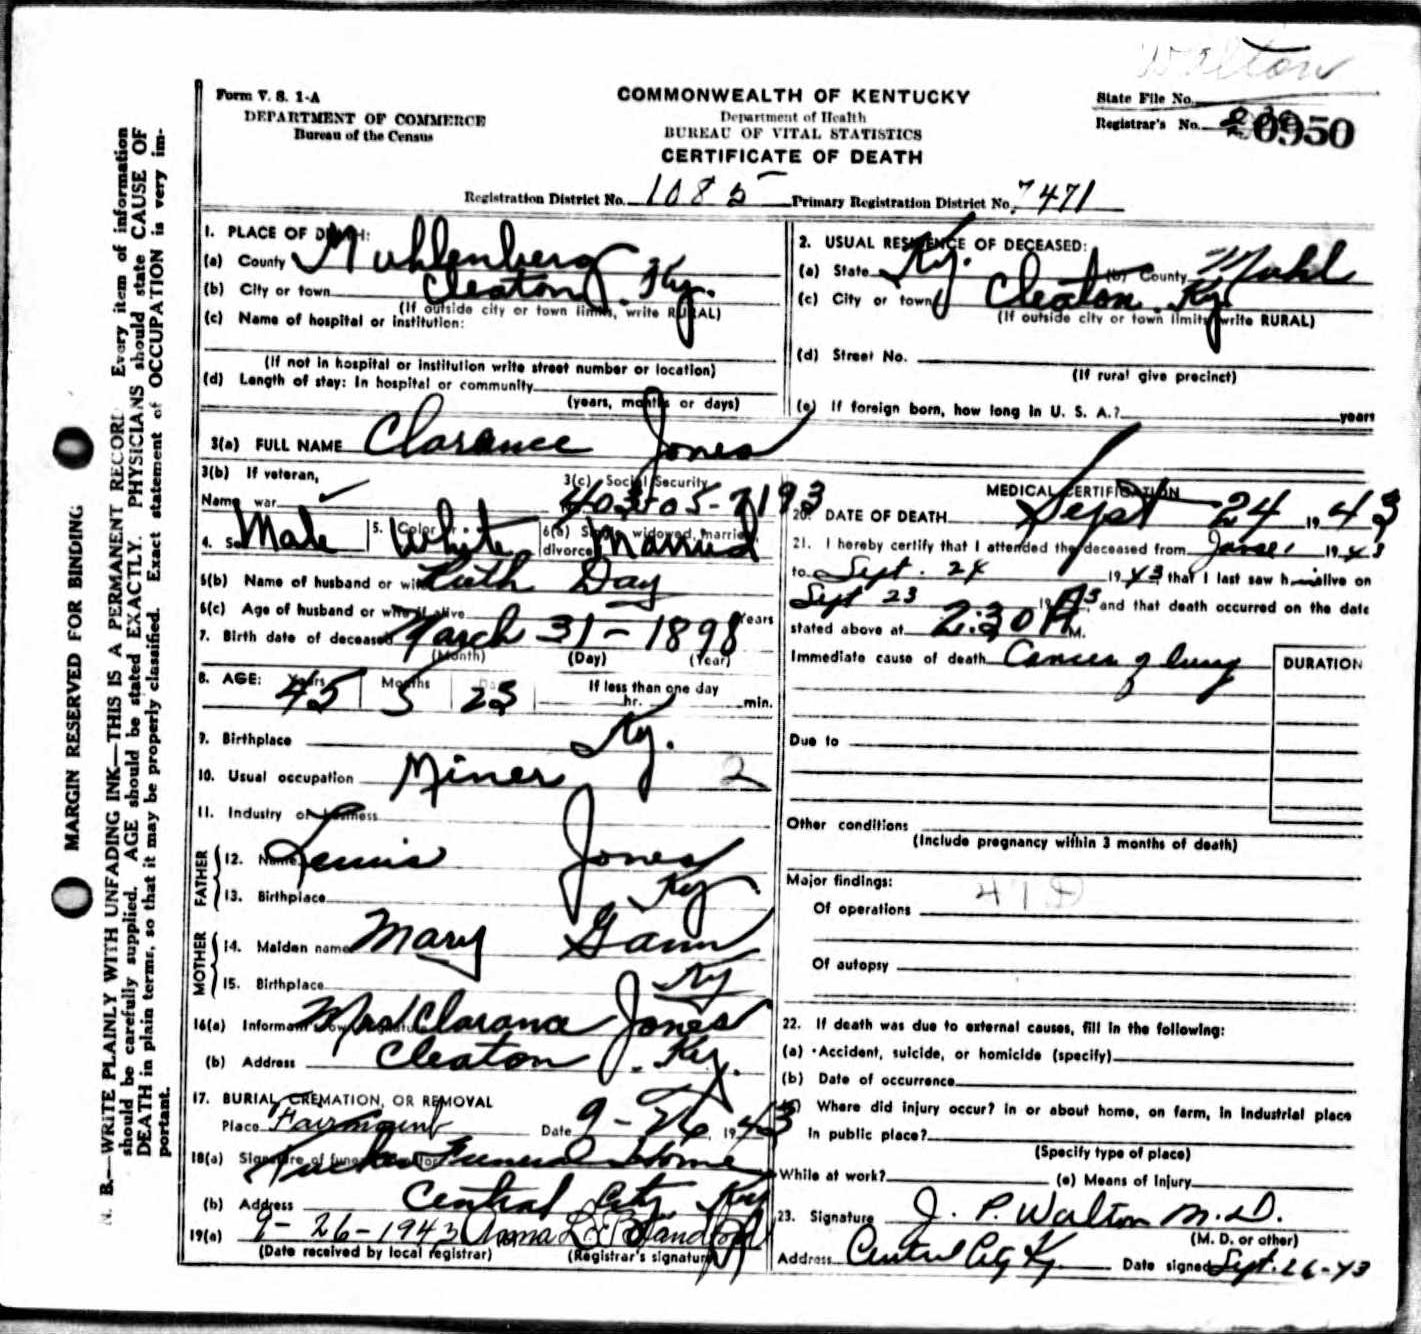 Walton
Form V. S. 1-A
DEPARTMENT OF COMMERCE
Bureau of the Census
COMMONWEALTH OF KENTUCKY
Department of Health
BUREAU OF VITAL STATISTICS
CERTIFICATE OF DEATH
State File No.
Registrar's No. 20950
Registration District No. 1085 Primary Registration District No. 7471
MARGIN RESERVED FOR BINDING
N. B.—WRITE PLAINLY WITH UNFADING INK—THIS IS A PERMANENT RECORD. Every item of information
should be carefully supplied. AGE should be stated EXACTLY. PHYSICIANS should state CAUSE OF
DEATH in plain terms, so that it may be properly classified. Exact statement of OCCUPATION is very im-
portant.
1. PLACE OF DEATH:
(a) County Muhlenberg
(b) City or town Cleaton, Ky.
(If outside city or town limits, write RURAL)
(c) Name of hospital or institution:
(If not in hospital or institution write street number or location)
(d) Length of stay: In hospital or community
(years, months or days)
2. USUAL RESIDENCE OF DECEASED:
(a) State Ky. (b) County Muhl
(c) City or town Cleaton Ky
(If outside city or town limits write RURAL)
(d) Street No.
(If rural give precinct)
(e) If foreign born, how long in U. S. A.? years
3(a) FULL NAME Clarence Jones
3(b) If veteran,
Name war ✓
3(c) Social Security
403-05-7193
4. Sex Male 5. Color or White 6(a) Single, widowed, married,
divorced Married
6(b) Name of husband or wife Ruth Day
6(c) Age of husband or wife if alive Years
7. Birth date of deceased March 31-1898
(Month) (Day) (Year)
8. AGE: Years Months Days If less than one day
45 5 23 hr. min.
9. Birthplace Ky.
10. Usual occupation Miner 2
11. Industry or business
FATHER
12. Name Lewis Jones
13. Birthplace Ky
MOTHER
14. Maiden name Mary Gann
15. Birthplace Ky
16(a) Informant's own signature Mrs Clarance Jones
(b) Address Cleaton, Ky.
17. BURIAL, CREMATION, OR REMOVAL
Place Fairmount Date 9-26, 1943
18(a) Signature of funeral director Tucker Funeral Home
(b) Address Central City Ky
19(a) 9-26-1943 Anna L
(Date received by local registrar) (Registrar's signature)
MEDICAL CERTIFICATION
20. DATE OF DEATH Sept 24, 1943
21. I hereby certify that I attended the deceased from June 1 1943
to Sept. 24 1943 that I last saw him alive on
Sept 23 1943, and that death occurred on the date
stated above at 2:30 A M.
Immediate cause of death Cancer of lung
DURATION
Due to
Other conditions
(Include pregnancy within 3 months of death)
Major findings: 47D
Of operations
Of autopsy
22. If death was due to external causes, fill in the following:
(a) Accident, suicide, or homicide (specify)
(b) Date of occurrence
Where did injury occur? In or about home, on farm, in industrial place
in public place?
(Specify type of place)
While at work? (e) Means of Injury
23. Signature J. P. Walton M.D.
(M. D. or other)
Address Central City Ky. Date signed Sept. 26-43